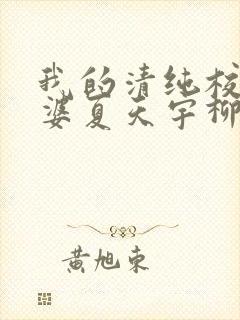 我的清纯校
婆夏天宇柳
黄旭东